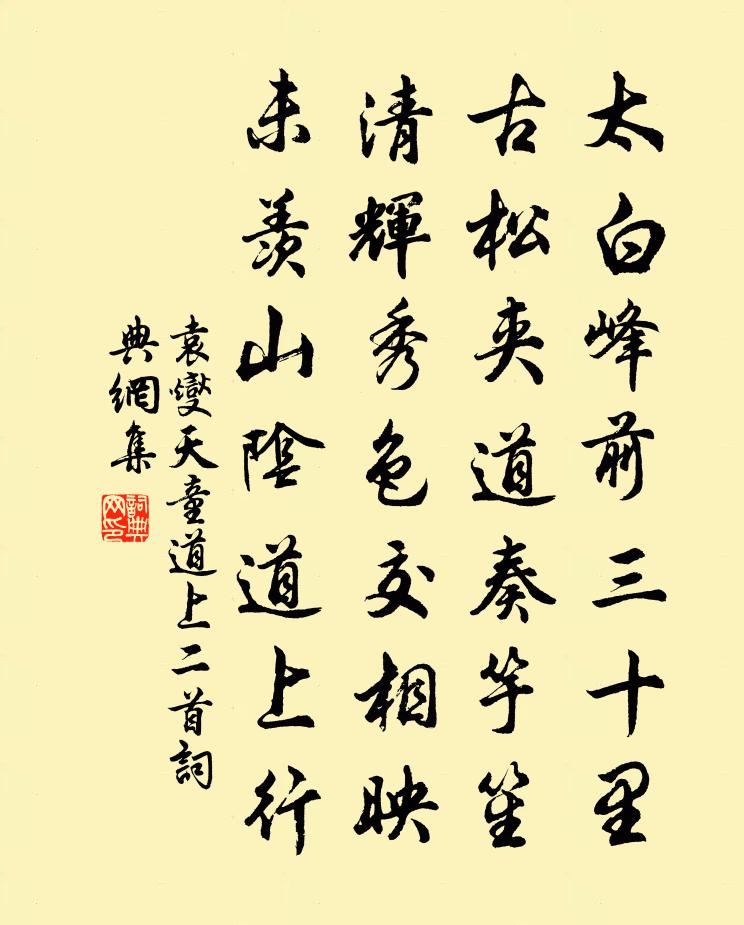 太白峰前三十里
古松夾道奏竽笙
清輝秀色交相映
未羨山陰道上行
袁燮天童道上二首詞
典網集
詞典網印